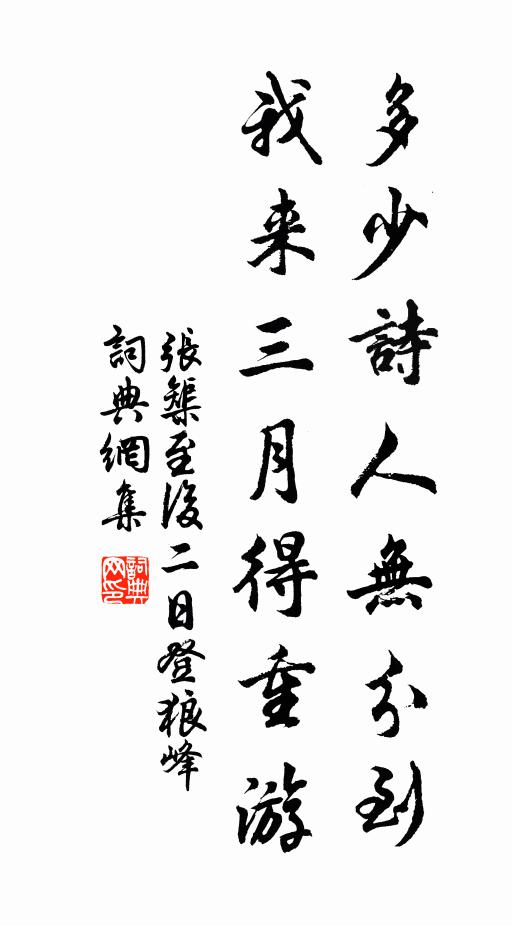 多少詩人無分到
我来三月得重游
張榘至後二日登狼峰
詞典網集
詞典網印